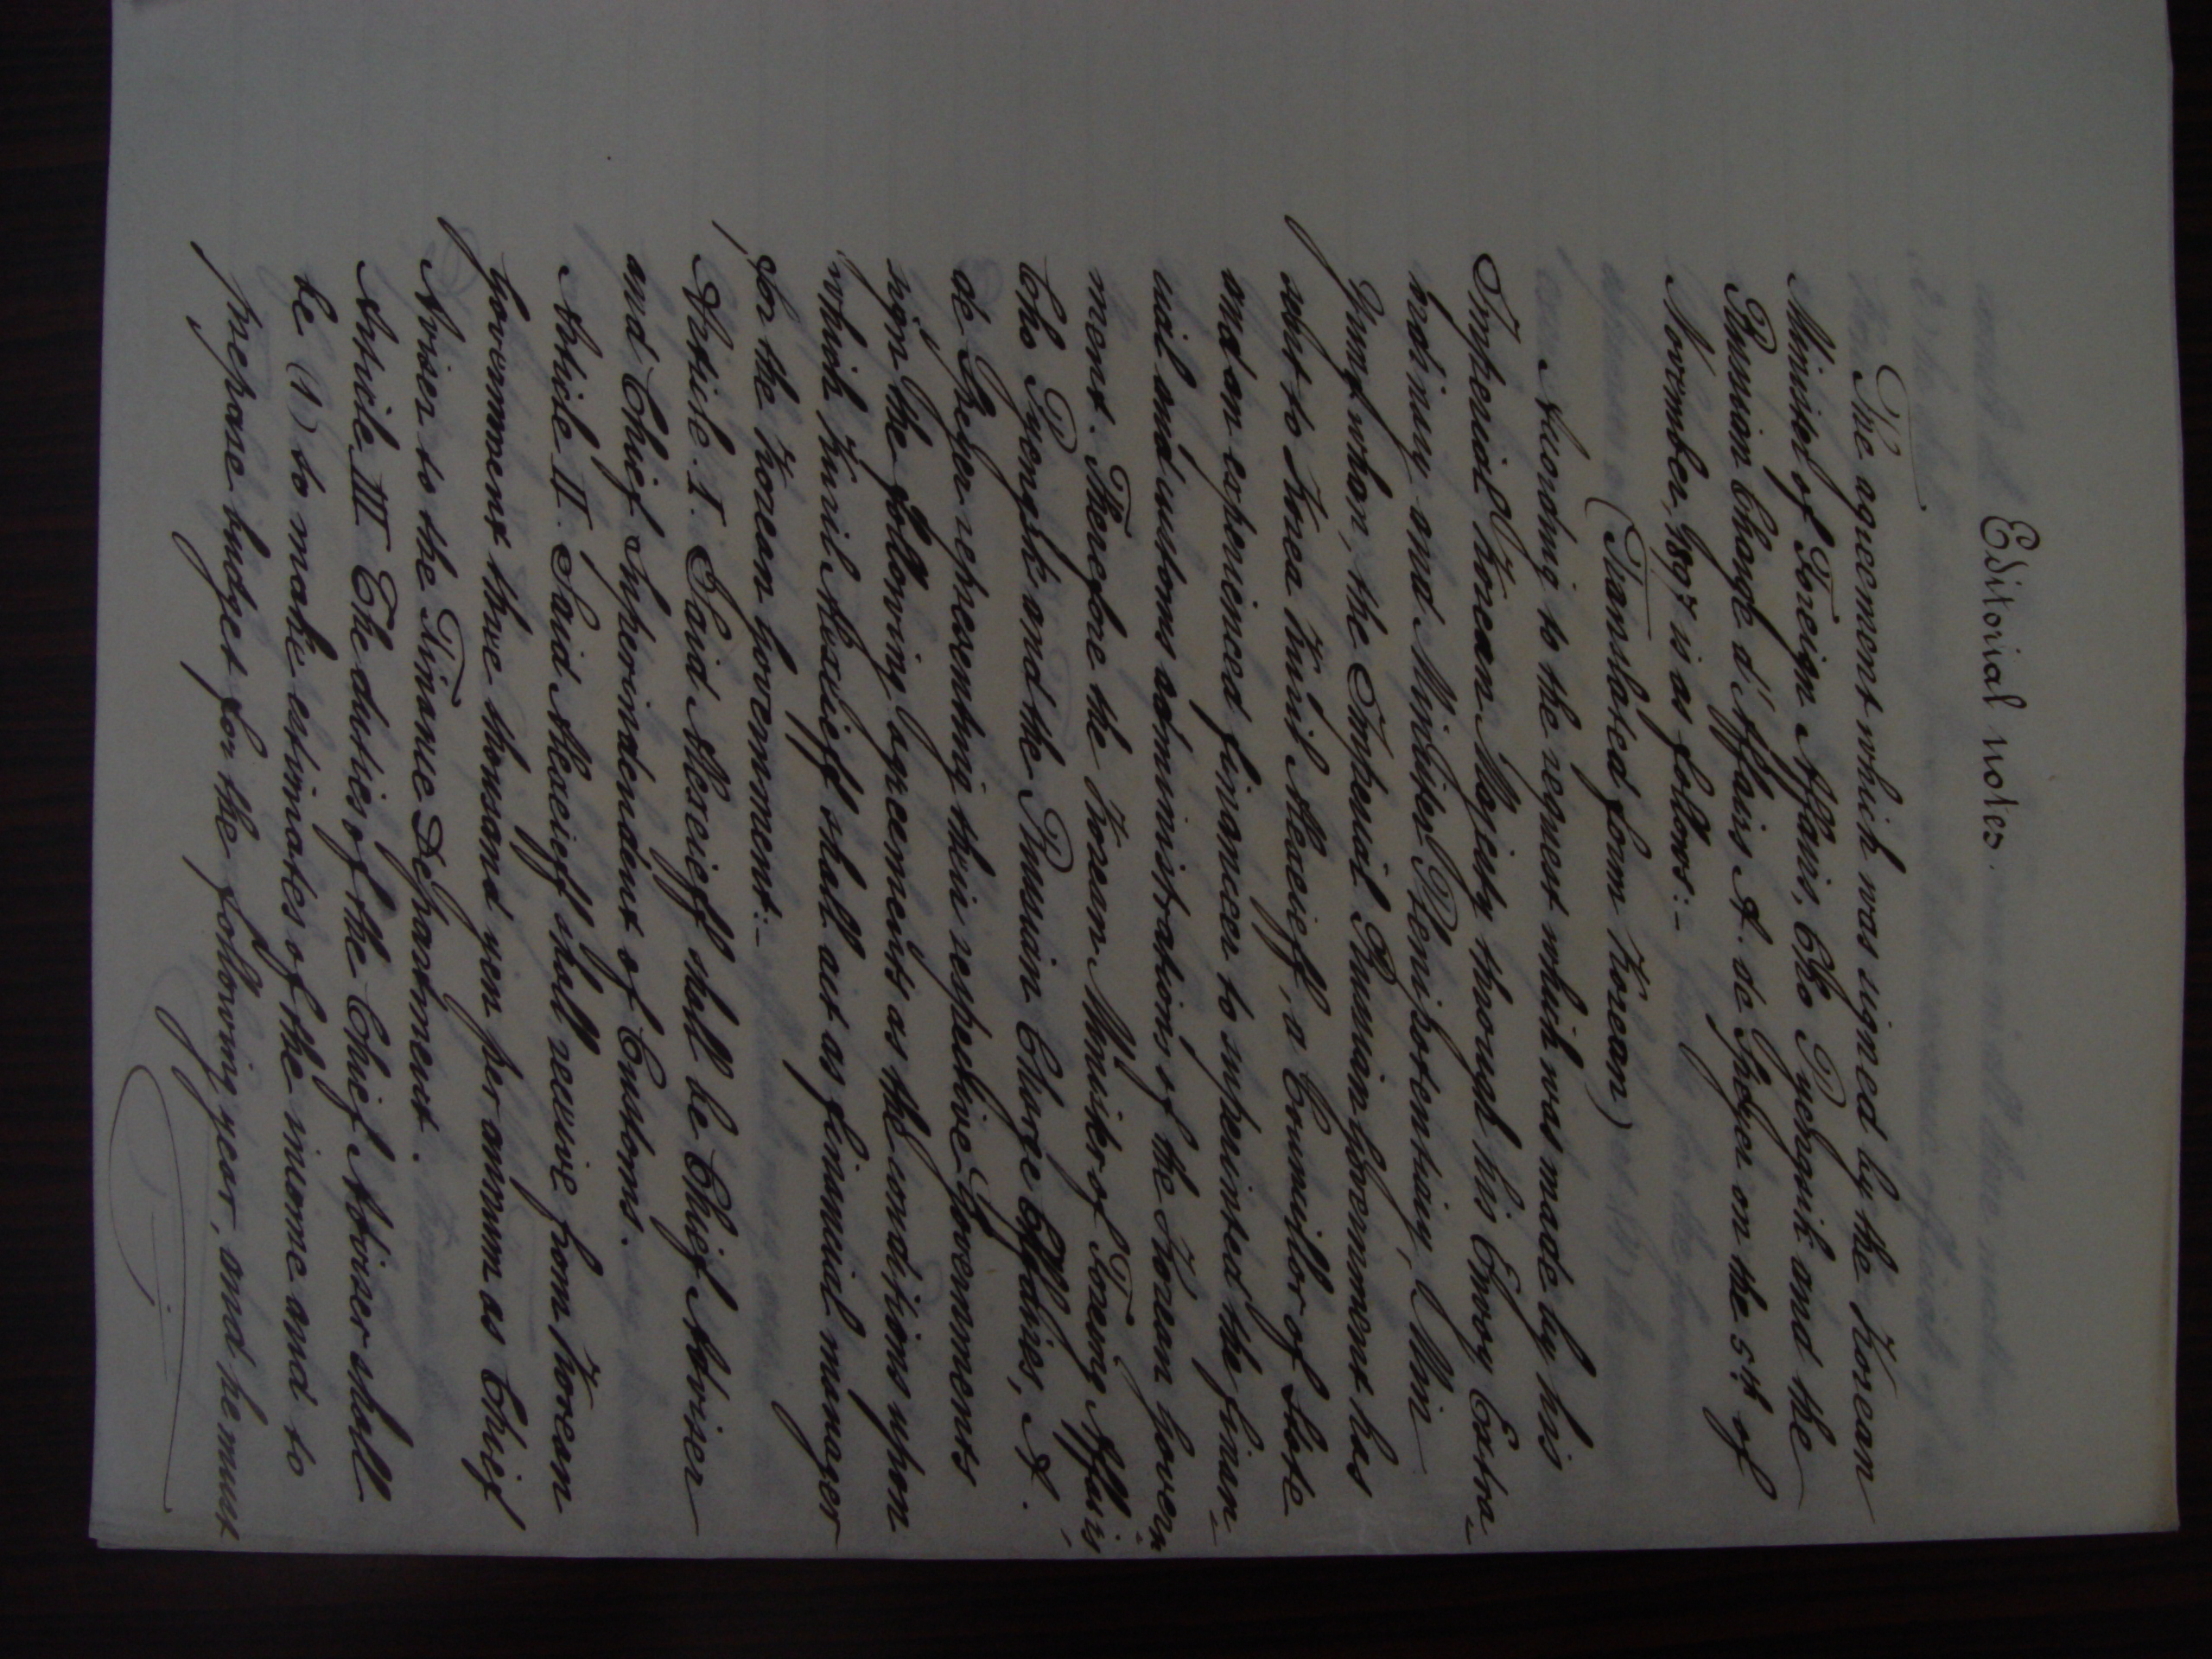 Editorial notes.
The agreement which was signed by the Korean
Minister of Foreign Affairs, Cho Pyengsik and the
Russian Chargé d'Affairs, A. de Speyer on the 5th of
November, 1897 is as follows:-
(Translated form Korean)
According to the request which was made by his
Imperial Korean Majesty through his Envoy Extra-
ordinary and Minister Plenipotentiary, Min
Yungwhan, the Imperial Russian Government has
sent to Korea Kuril Alexieff, a Councillor of State
and an experienced financeer to superintend the finan-
cial and customs administrations of the Korean Govern-
ment. Therefore the Korean Minister of Foreing Affairs,
Cho Pyengsik and the Russian Charge Affaires, A.
de Speyer representing their respective Governments
sign the following agreements as the conditions upon
which Kuril Alexieff shall act as financial manager
for the Korean Government:-
Article I. Said Alexieff shall be Chief Adviser
and Chief Superindendent of Customs.
Article II. Said Alexieff shall receive from Korean
Government three thousand yen per annum as Chief
Adviser to the Finance Department.
Article III The duties of the Chief Adviser shall
be (1) to make estimates of the income and to
prepare budget for the following year, and he must